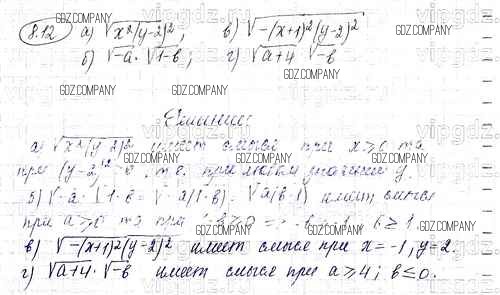 8.12 а) √x²(y-2)²; в) √-(x+1)²(y-2)²
б) √-a · √1-в; г) √a+4 · √-в
Решение:
а) √x²(y-2)² имеет смысл при x⩾0 та
при (y-2)² т.е. при любом значении y.
б) √-a · √1-в = √-a(1-в) = √a(в-1) имеет смысл
при a⩾0 та при в⩾1.
в) √-(x+1)²(y-2)² имеет смысл при x=-1, y=2.
г) √a+4 · √-в имеет смысл при a⩾4; в≤0.
GDZ.COMPANY
vipgdz.ru